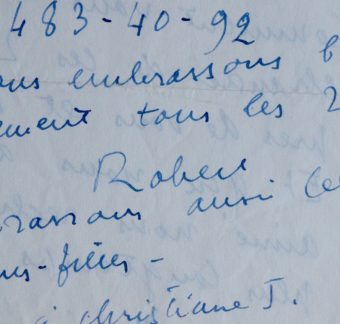 483-40-92
ous embrassons b
ement tous les 2
Robert
rassons aussi le
ns-filles -
Christiane J.